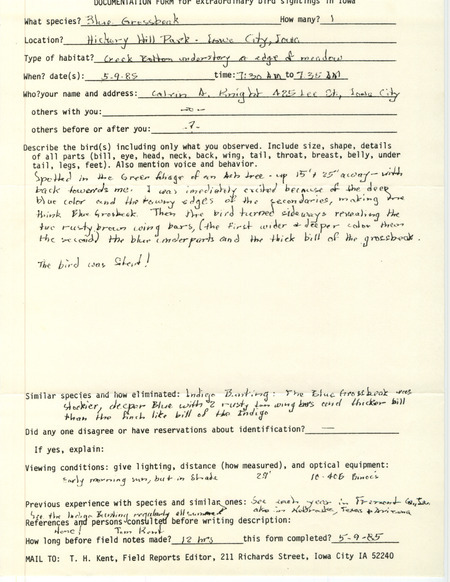 DOCUMENTATION FORM for extraordinary bird sightings in Iowa
What species? Blue Grosbeak How many? 1
Location? Hickory Hill Park - Iowa City, Iowa
Type of habitat? Creek Bottom understory & edge of meadow
When? date(s): 5-9-85 time: 7:30 AM to 7:35 AM
Who? your name and address: Calvin A. Knight 425 Lee St., Iowa City
others with you: -0-
others before or after you: -?-
Describe the bird(s) including only what you observed. Include size, shape, details
of all parts (bill, eye, head, neck, back, wing, tail, throat, breast, belly, under
tail, legs, feet). Also mention voice and behavior.
Spotted in the Green foliage of an Ash tree - up 15' & 25' away - with
back towards me. I was imediatly excited because of the deep
blue color and the tawny edges of the secondaries, making me
think Blue Grosbeak. Then the bird turned sideways revealing the
two rusty brown wing bars, (the first wider & deeper color than
the second) the blue underparts and the thick bill of the grosbeak.
The bird was Silent!
Similar species and how eliminated: Indigo Bunting: The Blue Grosbeak was
stockier, deeper Blue with 2 rusty tan wing bars and thicker bill
than the finch like bill of the Indigo
Did any one disagree or have reservations about identification? —
If yes, explain:
Viewing conditions: give lighting, distance (how measured), and optical equipment:
Early morning sun, but in Shade 25' 10-40B Binocs
Previous experience with species and similar ones: See each year in Fremont Co., Iowa
See the Indigo Bunting regularly all summer also in Nebraska, Texas & Arizona
References and persons consulted before writing description:
None! Tom Kent
How long before field notes made? 12 hrs this form completed? 5-9-85
MAIL TO: T. H. Kent, Field Reports Editor, 211 Richards Street, Iowa City IA 52240